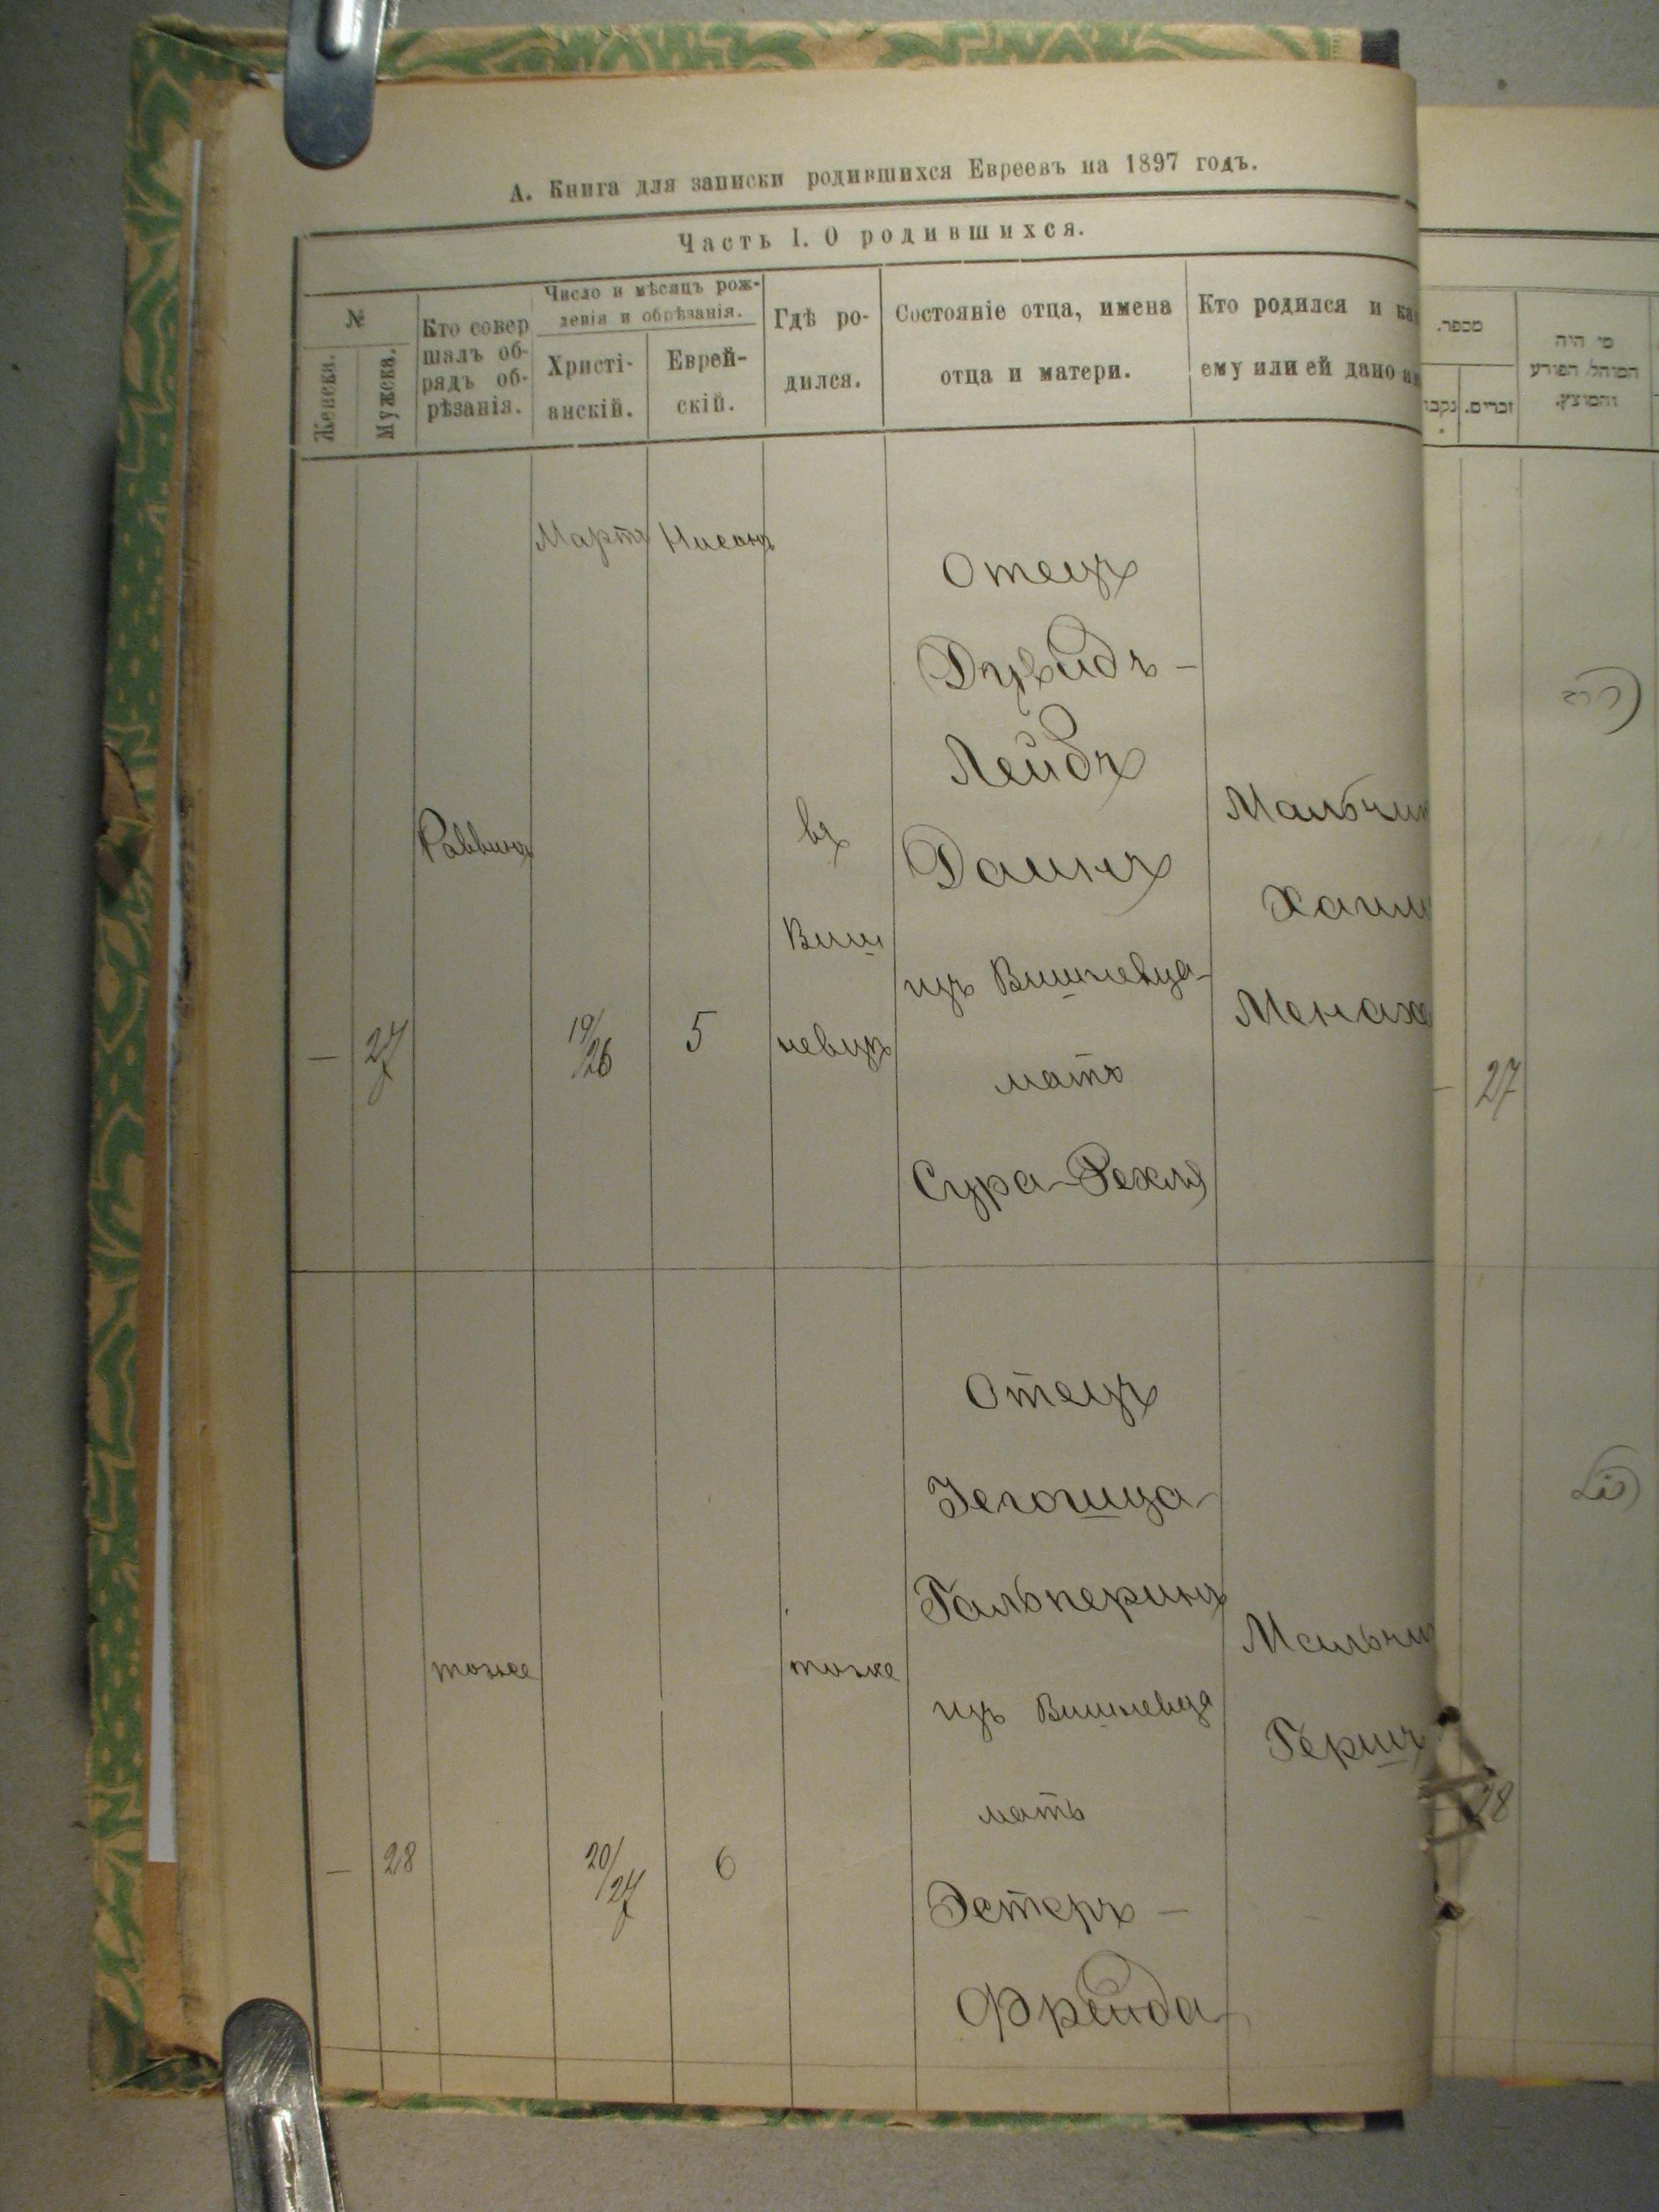 А. Книга для записки родившихся Евреевъ на 1897 годъ.
Часть I. О родившихся.
№
Женска.
Мужска.
Кто совер
шалъ об-
рядъ об-
рѣзанія.
Число и мѣсяцъ рож-
денія и обрѣзанія.
Христі-
анскій.
Еврей-
скій.
Гдѣ ро-
дился.
Состояніе отца, имена
отца и матери.
Кто родился и ка
ему или ей дано
מספר.
נקבו
זכרים.
מי היה
המוהל הפורע
והמוצץ.
Мартъ
Нисанъ
—
27
Раввинъ
19/26
5
въ
Виш
невцѣ
Отецъ
Дувидъ-
Лейбъ
Даинъ
изъ Вишневца
мать
Сура-Рехля
Мальчик
Хаим
Менахе
27
—
28
тоже
20/27
6
тоже
Отецъ
Іегошуа
Гальперинъ
изъ Вишневца
мать
Эстеръ -
Фрейда
Мальчи
Гершъ
28